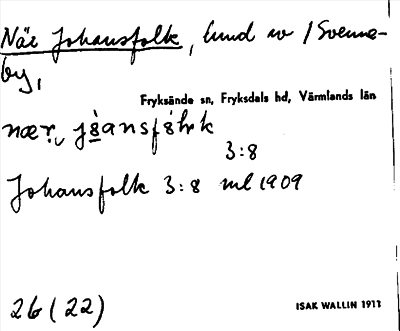 När Johansfolk, lund av / Svenne-
by,
Fryksände sn, Fryksdals hd, Värmlands län
3:8
Johansfolk 3:8 ml 1909
26 (22)
ISAK WALLIN 1911